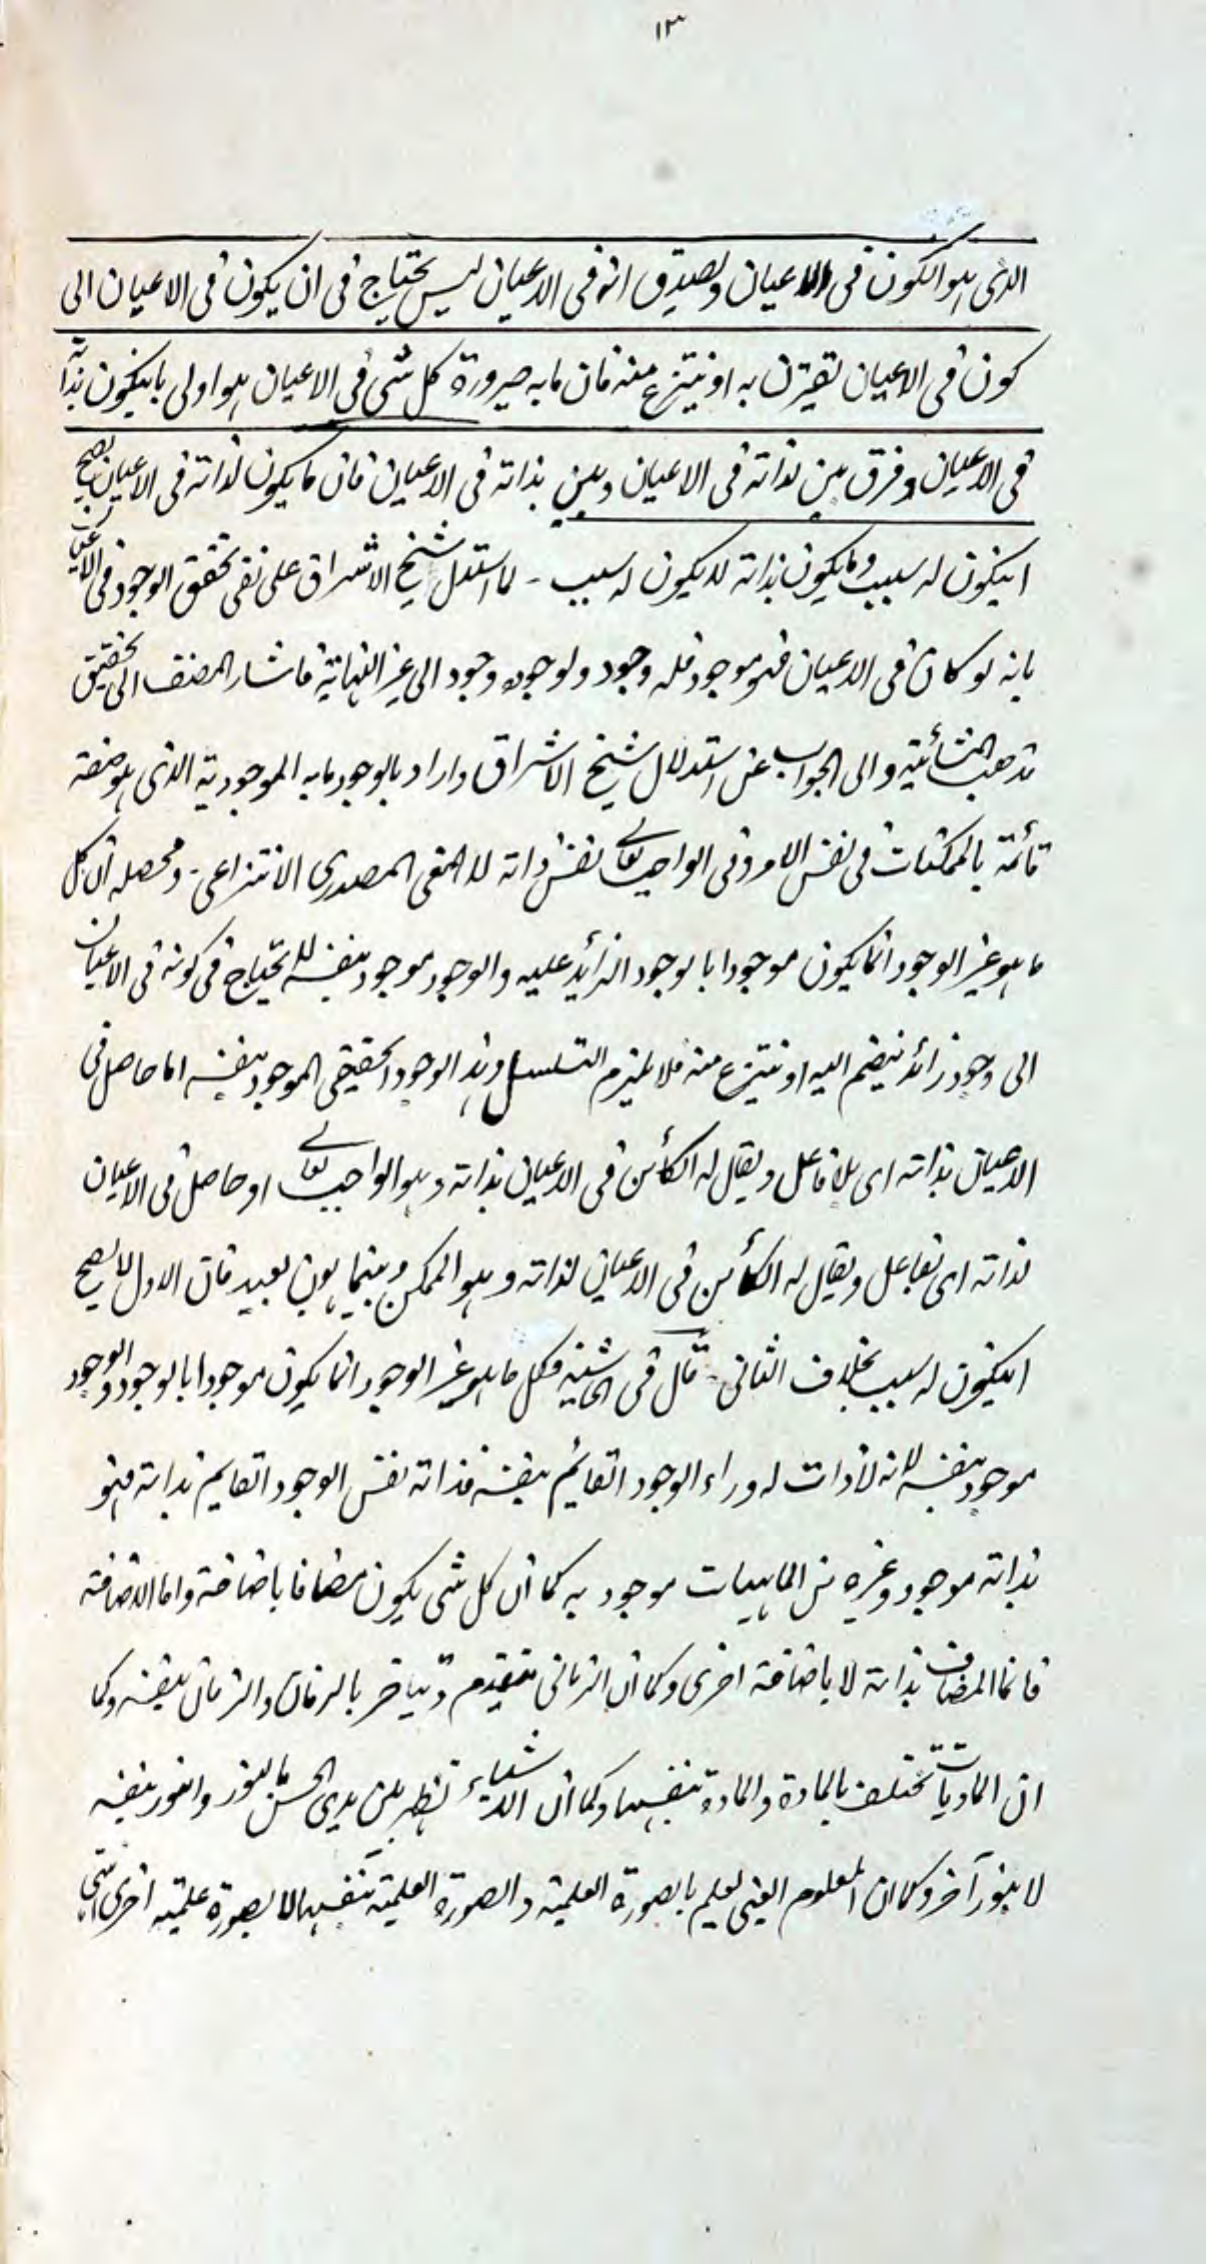 ١٣
الذى هو الكون فى الاعيان ويصدق انه فى الاعيان ليس يحتاج فى ان يكون فى الاعيان الى
كون فى الاعيان يقترن به او ينتزع منه فان ما به صيرورة كل شى فى الاعيان هو اولى بانيكون بذاته
فى الاعيان وفرق بين لذاته فى الاعيان وبين بذاته فى الاعيان فان ما يكون لذاته فى الاعيان يصح
انيكون له سبب وما يكون بذاته لا يكون له سبب - لما استدل شيخ الاشراق على نفى تحقق الوجود فى الاعيان
بانه لو كان فى الاعيان فهو موجود فله وجود ولوجوده وجود الى غير النهاية فاشار المصنف الى تحقيق
مذهب المشائية والى الجواب عن استدلال شيخ الاشراق واراد بالوجود ما به الموجودية الذى هو صفة
قائمة بالممكنات فى نفس الامر وفى الواجب تعالى نفس ذاته لا المعنى المصدرى الانتزاعى - ومحصله ان كل
ما هو غير الوجود انما يكون موجودا بالوجود الزائد عليه والوجود موجود بنفسه لا يحتاج فى كونه فى الاعيان
الى وجود زائد ينضم اليه او ينتزع منه فلا يلزم التسلسل وهذا الوجود الحقيقى الموجود بنفسه اما حاصل فى
الاعيان بذاته اى بلا فاعل ويقال له الكائن فى الاعيان بذاته وهو الواجب تعالى او حاصل فى الاعيان
لذاته اى بفاعل ويقال له الكائن فى الاعيان لذاته وهو الممكن وبينهما بون بعيد فان الاول لا يصح
انيكون له سبب بخلاف الثانى - قال فى الحاشية فكل ما هو غير الوجود انما يكون موجودا بالوجود والوجود
موجود بنفسه لانه لا ذات له وراء الوجود القائم بنفسه فذاته نفس الوجود القايم بذاته فهو
بذاته موجود وغيره من الماهيات موجود به كما ان كل شى يكون مضافا باضافة واما الاضافة
فانما المضاف بذاته لا باضافة اخرى وكما ان الزمانى يتقدم ويتاخر بالزمان والزمان بنفسه وكما
ان الماديات تختلف بالمادة والمادة بنفسها وكما ان الاشياء تظهر بين يدى الحس بالنور والنور بنفسه
لا بنور آخر وكما ان المعلوم العينى يعلم بالصورة العلمية والصورة العلمية بنفسها لا بصورة علمية اخرى انتهى